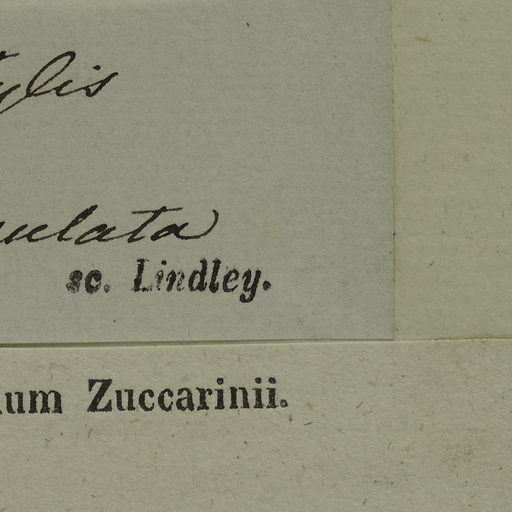 ylis
ulata
sc. Lindley.
um Zuccarinii.